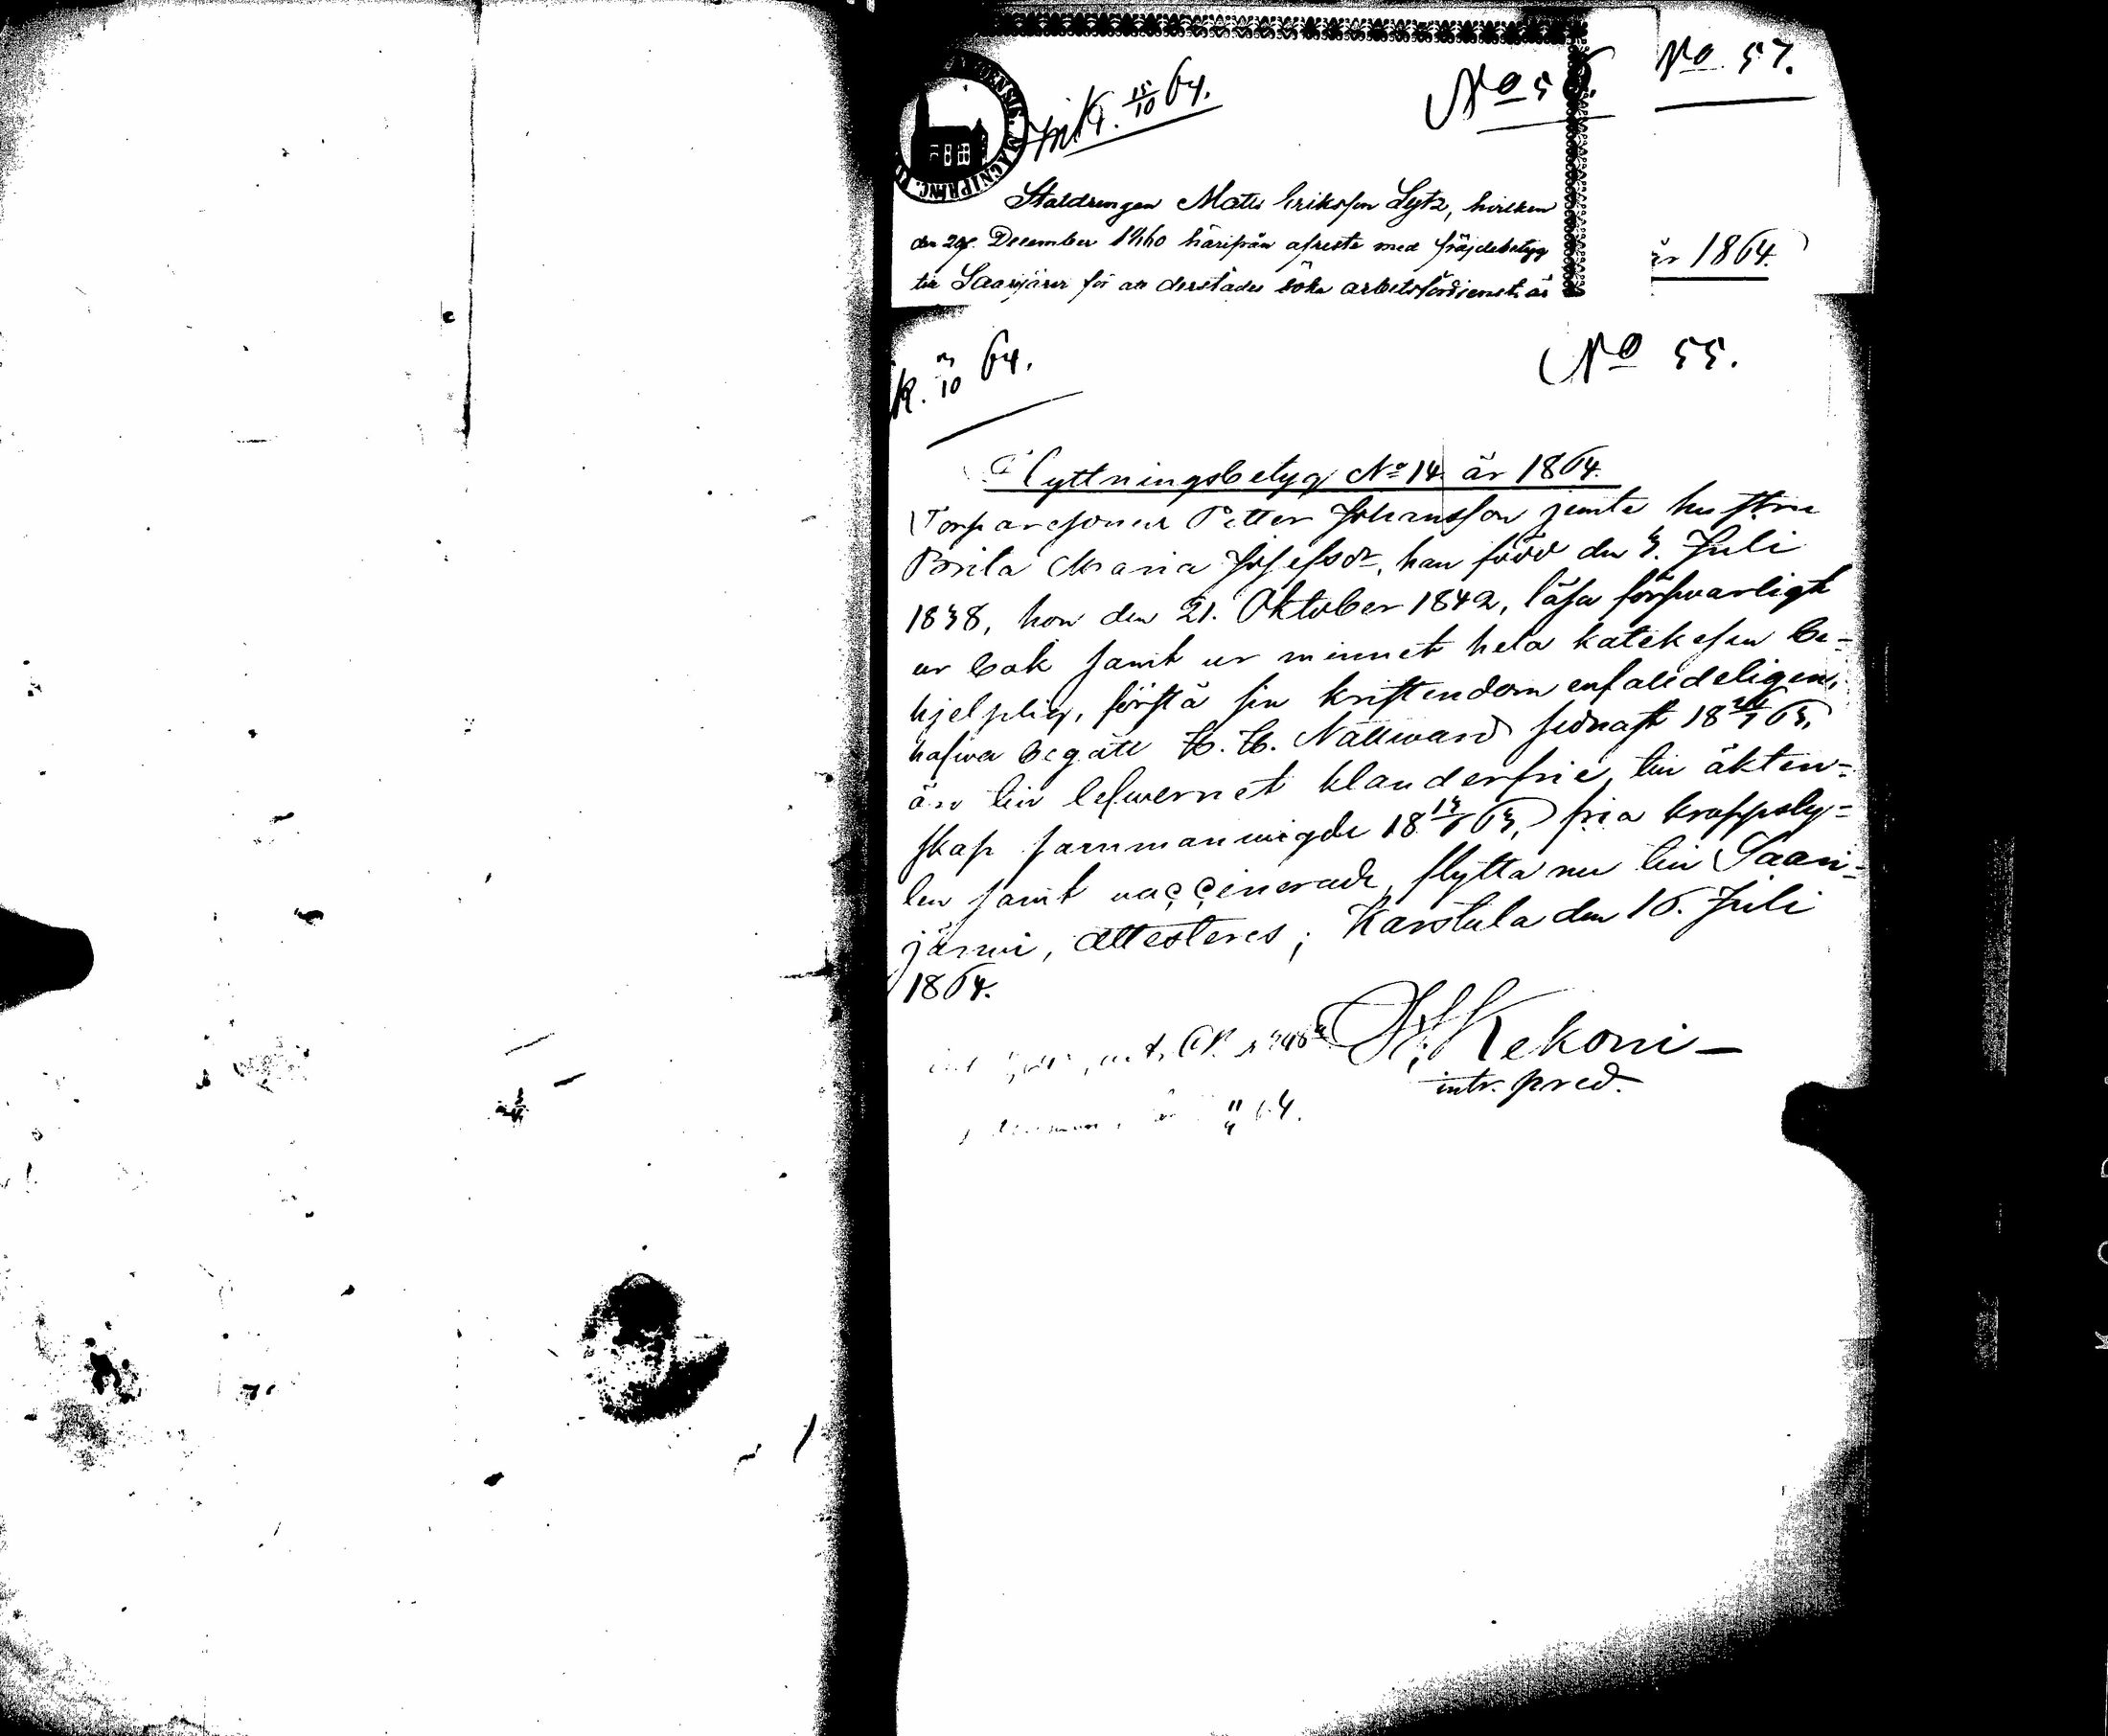 No 57.
Ink. 15/10 64.
No 56.
Staldrengen Matts Eriksson Lytz, hvilken
den 29. December 1860 härifrån afreste med fräjdebetyg
till Saarijärvi för att derstädes söka arbetsförtjenst, är
år 1864.
k. 3/10 64.
No 55.
Flyttningsbetyg No 14 år 1864.
Torparesonen Petter Johansson jemte hustru
Brita Maria Josefsdr, han född den 3. Juli
1838, hon den 21. Oktober 1842, läsa försvarligt
ur bok samt ur minnet hela katekesen be-
hjelplig, förstå sin kristendom enfaldeligen,
hafva begått H. H. Nattward sednast 18 /7 63,
än till lefwernet klanderfrie, till äkten-
skap sammanwigde 18 13/6 63, fria kroppsly-
ten samt vaccinerade, flytta nu till Saari-
järwi, attesteres; Karstula den 16. Juli
1864.
Kekoni
intr. pred.
11/9 64.
KODA